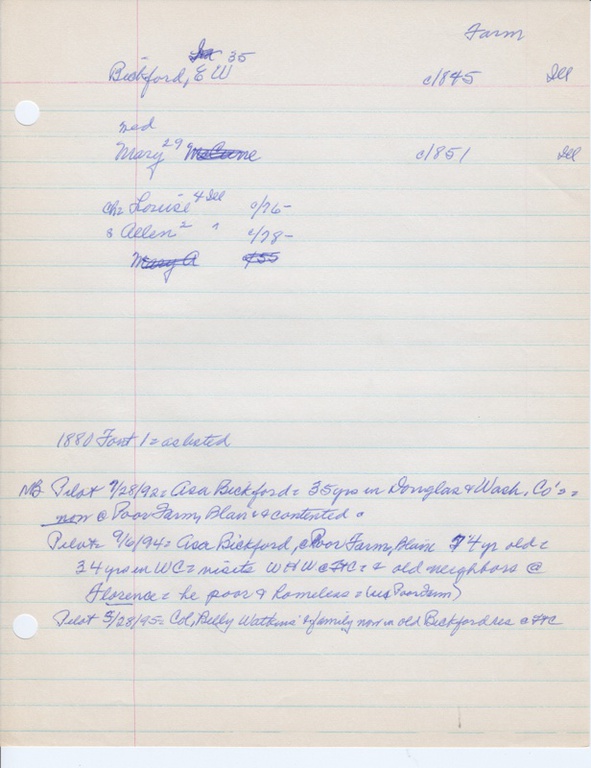 Farm
35
Bickford, E W c/845 Ill
md
Mary 29 c/851 Ill
chn Louise 4 Ill c/76-
s Allen 2 " c/78-
Mary A c/55
1880 Font 1 = as listed
NB Pilot 9/28/92 = Asa Bickford = 35 yrs in Douglas & Wash. Co's =
now @ Poor Farm, Blair & contented.
Pilot = 9/6/94 = Asa Bickford, c Poor Farm, Blair 74 yr old =
34 yrs in WC = visits W H W c Ft C = & old neighbors @
Florence = he poor & homeless = (us Poor Farm)
Pilot 5/28/95 = Col, Billy Watkins & family now in old Bickford res c Ft C